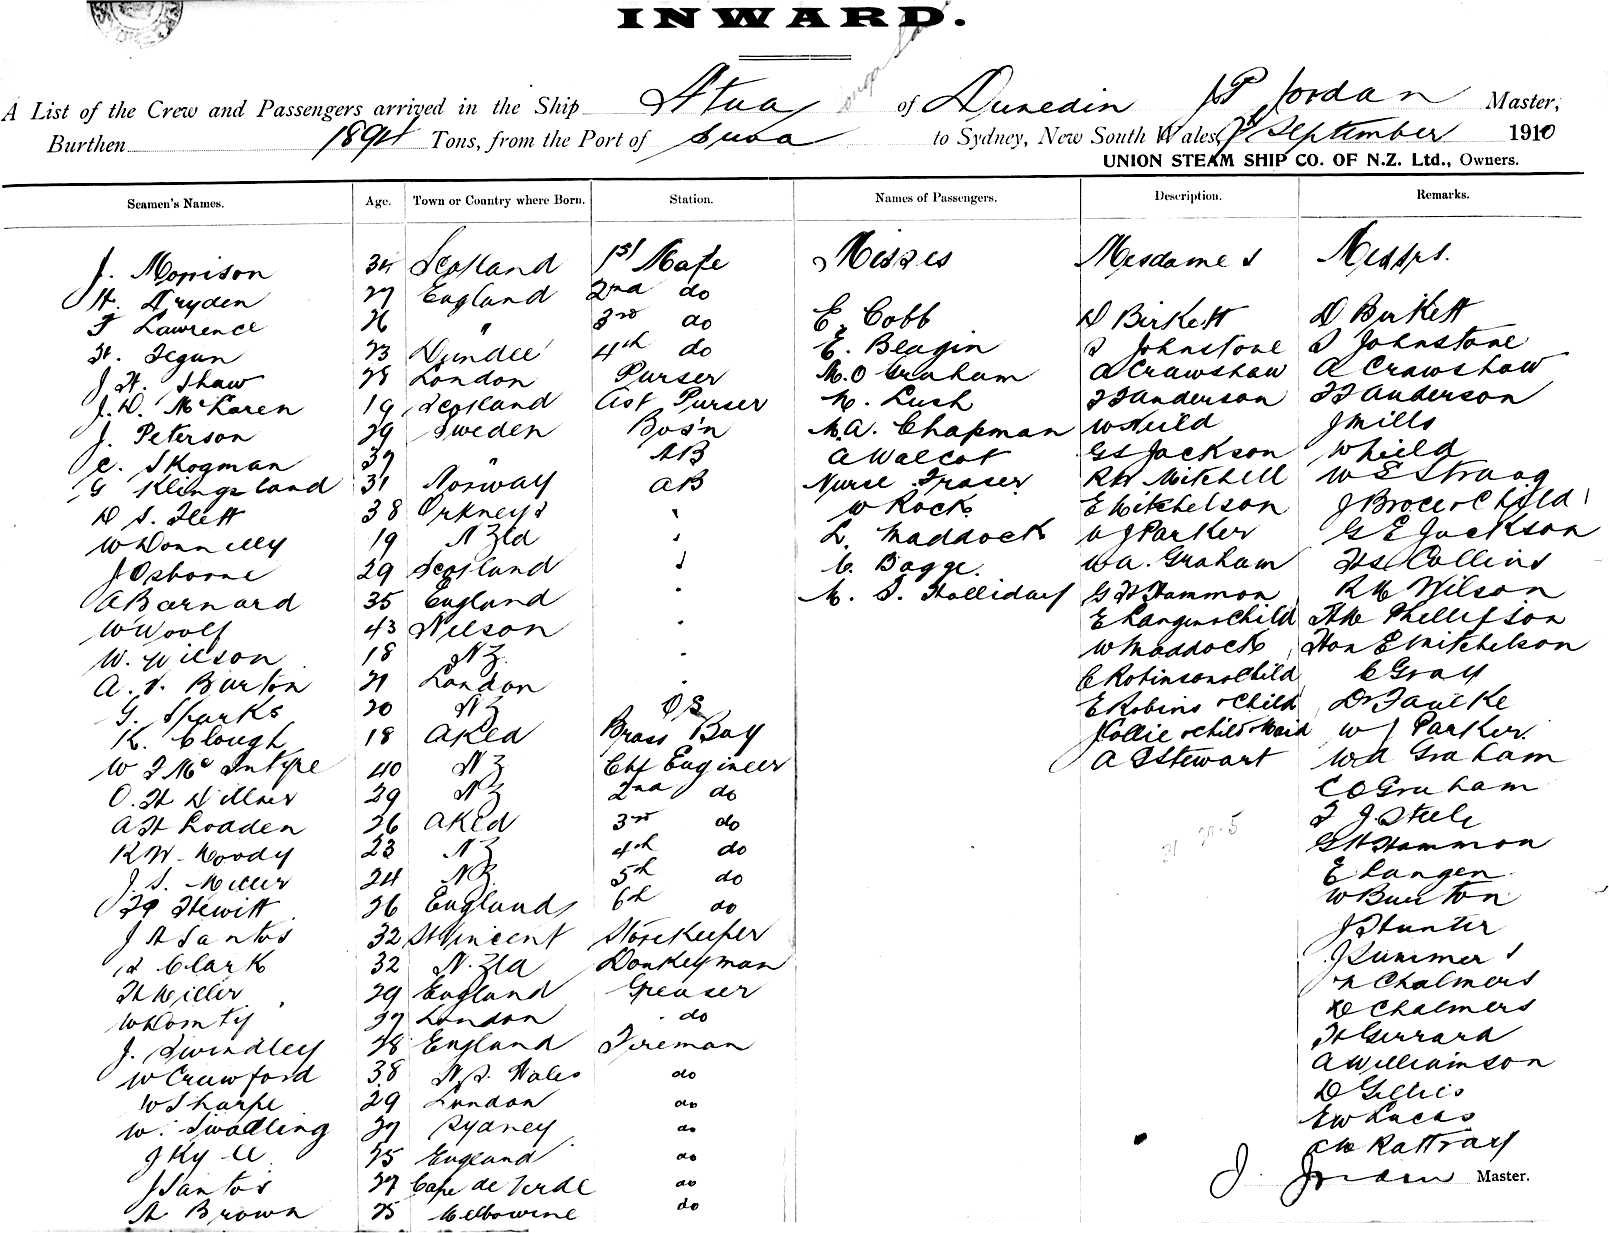 INWARD.
A List of the Crew and Passengers arrived in the Ship Atua of Dunedin J P Jordan Master,
Burthen 1891 Tons, from the Port of Suva to Sydney, New South Wales, 7th September 1910
UNION STEAM SHIP CO. OF N.Z. Ltd., Owners.
Seamen's Names. Age. Town or Country where Born. Station. Names of Passengers. Description. Remarks.
J. Morrison 34 Scotland 1st Mate Misses Mesdames Messrs.
H. Dryden 27 England 2nd do
F Lawrence 26 " 3rd do E. Cobb D Birkett D Birkett
H. Tegun 23 Dundee 4th do E. Beagin J Johnstone J Johnstone
J. H. Shaw 28 London Purser M. O Graham A Crawshaw A Crawshaw
J. D. McLaren 19 Scotland Ast Purser M. Lush F F Anderson F F Anderson
J. Peterson 29 Sweden Bos'n M. A. Chapman W Hield J Mills
C. Skogman 37 " AB A Walcot G E Jackson W Hield
G Klingsland 31 Norway AB Nurse Fraser R W Mitchell W E Stroag
D S. Flett 38 Orkneys " W Rock E Mitchelson J Broce & Child
W Donnelly 19 N Zld " L. Maddock W J Parker G E Jackson
J Osborne 29 Scotland " C. Bagge W A. Graham H S Collins
A Barnard 35 England " M. S. Holliday G H Hammon R M Wilson
W Woolf 43 Nelson " E Langen & Child H W Phellipson
W. Wilson 18 N Z. " W Maddock Hon E Mitchelson
A. V. Burton 21 London " E Robinson & Child C Gray
G. Sparks 20 N Z OS E Robins & Child Dr Faucke
K. Clough 18 Akld Brass Boy J Collie & Child & Maid W J Parker
W F McIntyre 40 N Z Chf Engineer A F Stewart W A Graham
O. H Dillner 29 N Z 2nd do C O Graham
A H Loaden 26 Akld 3rd do F J. Steele
R W. Moody 23 N Z 4th do G H Hammon
J. S. Miller 24 N Z. 5th do E Langen
F G Hewitt 26 England 6th do W Burton
J A Santos 32 St Vincent Storekeeper J Hunter
H Clark 32 N. Zld Donkeyman J Summers
H Miller 29 England Greaser M Chalmers
W Domty 37 London do D Chalmers
J. Swindley 28 England Fireman H Gerrard
W Crawford 38 N. S. Wales do A Williamson
W Sharpe 29 London do D Gillies
W. Swadling 37 Sydney do E W Lucas
J Kyle 25 England do C W Rattray
J Santos 27 Cape de Verde do J. Jordan Master.
A Brown 25 Melbourne do